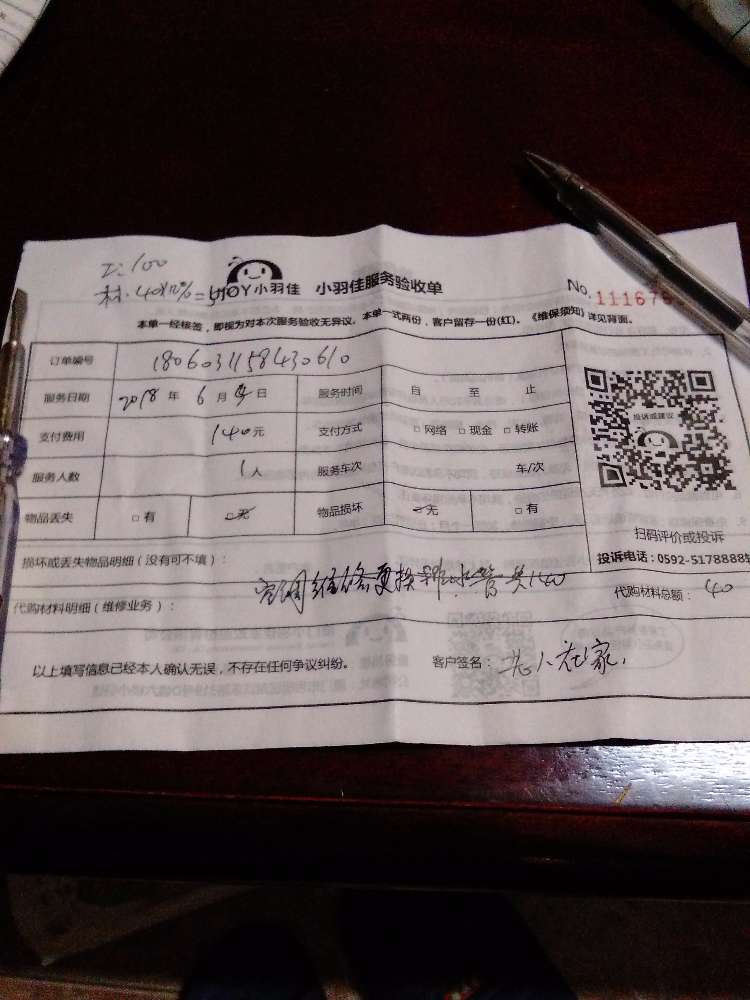 工:100
材:40×12%=5
小羽佳 小羽佳服务验收单 No.
本单一经核签，即视为对本次服务验收无异议。本单一式两份，客户留存一份(红)。《维保须知》详见背面。
订单编号 1806031158430610
服务日期 2018 年 6 月 日 服务时间 自 至 止
支付费用 140元 支付方式 □网络 □现金 □转账
服务人数 1人 服务车次 车/次
物品丢失 □有 □无 物品损坏 □无 □有
投诉或建议
扫码评价或投诉
投诉电话：0592-5178888转
损坏或丢失物品明细（没有可不填）：
代购材料明细（维修业务）： 空调维修更换排水管共140 代购材料总额： 40
以上填写信息已经本人确认无误，不存在任何争议纠纷。 客户签名： 在家